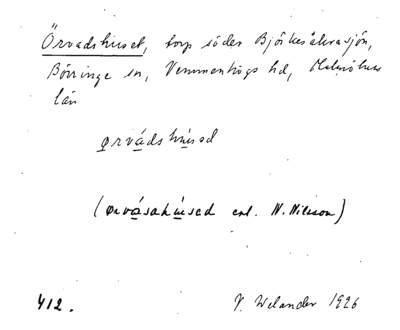 Örvadshuset, torp söder Björkesåkrasjön,
Börringe sn, Vemmenhögs hd, Malmöhus
län
ǫrvádshúsed
(ǫrvásahúsed enl. N. Nilsson)
412. V. Welander 1926